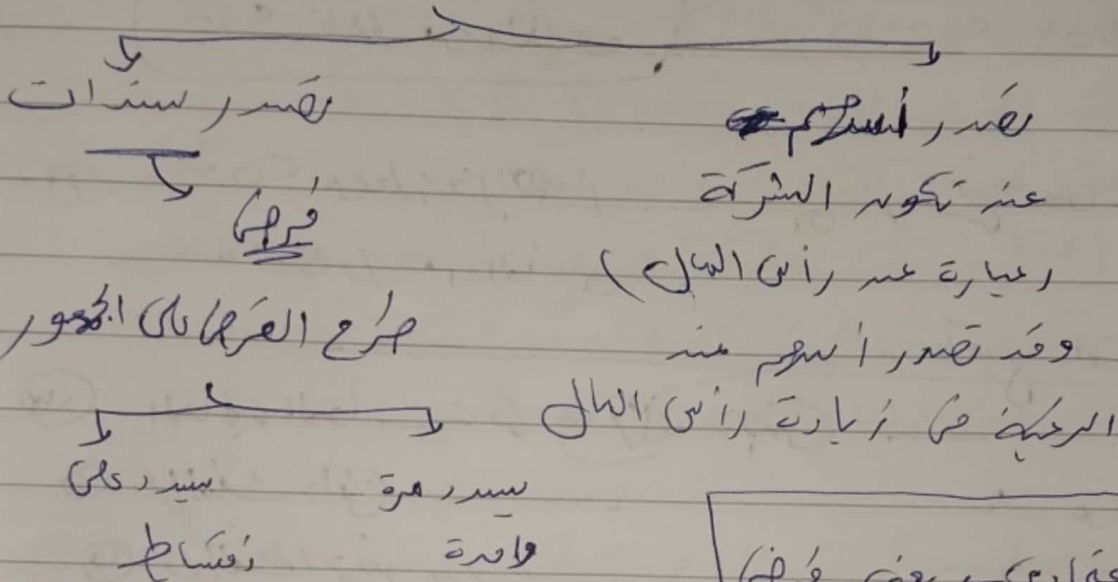 تصدر أسهم
عند تكوين الشركة
(عبارة عن رأس المال)
وقد تصدر أسهم عند
الرغبة في زيادة رأس المال
تصدر سندات
قرض
طرح القرض على الجمهور
يسدد مرة
واحدة
يسدد على
أقساط
يعني قرض